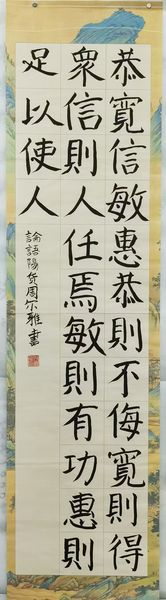 恭寬信敏惠恭則不侮寬則得
衆信則人任焉敏則有功惠則
足以使人
論語陽货周尓雅書